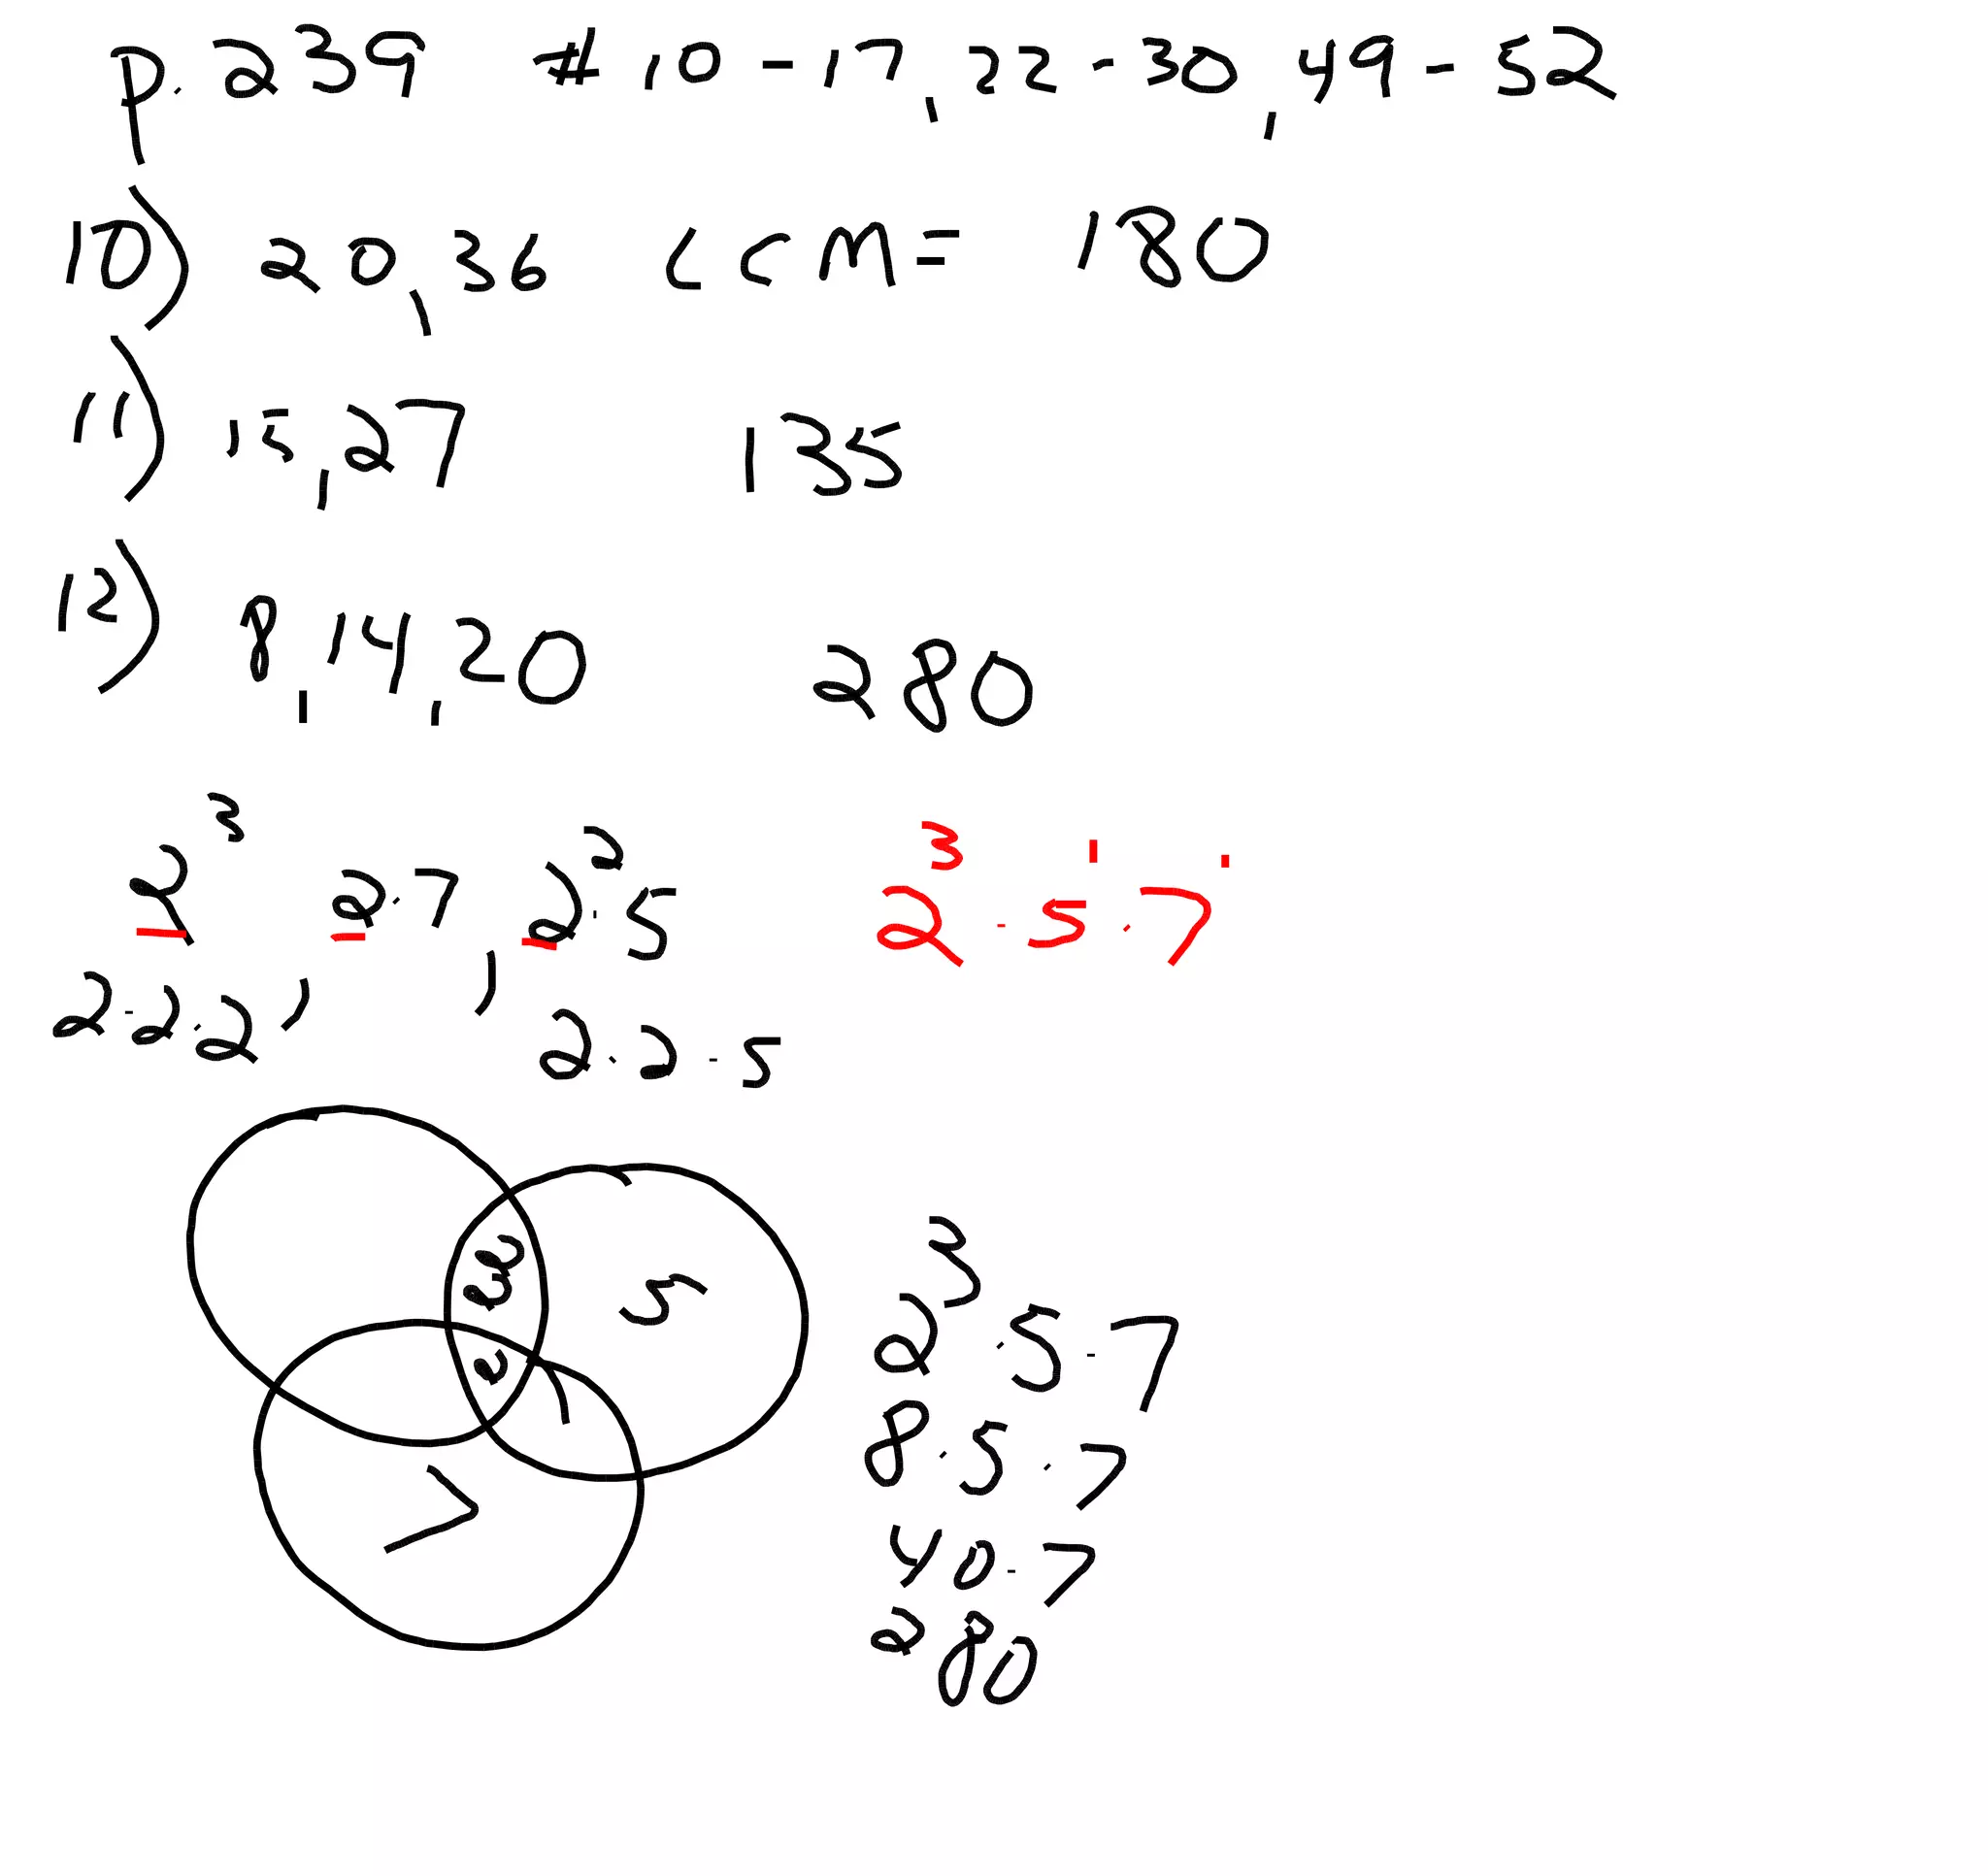 p. 239 # 10 - 17, 22 - 30, 49 - 52
10) 20, 36 LCM = 180
11) 15, 27 135
12) 8, 14, 20 280
2³ 2·7, 2²·5 2³·5¹·7¹
2·2·2, 2·2·5
2 2 5
2
7
2³·5·7
8·5·7
40·7
280